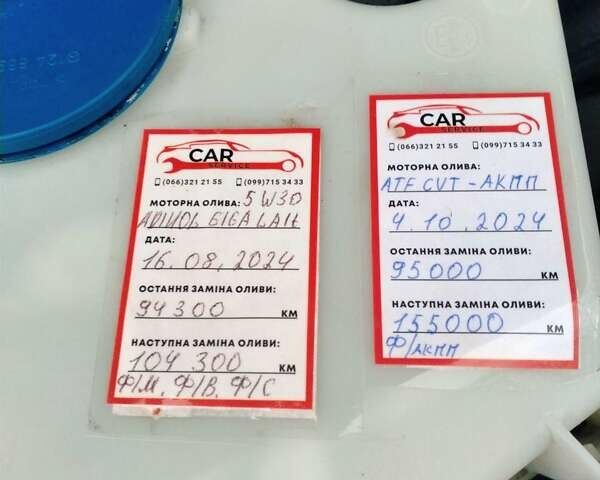 CAR
SERVICE
(066)321 21 55 (099)715 34 33
МОТОРНА ОЛИВА: 5W30
ADINOL GIGA LAIT
ДАТА:
16.08.2024
ОСТАННЯ ЗАМІНА ОЛИВИ:
94300 КМ
НАСТУПНА ЗАМІНА ОЛИВИ:
104 300 КМ
Ф/М, Ф/В, Ф/С
CAR
SERVICE
(066)321 21 55 (099)715 34 33
МОТОРНА ОЛИВА:
ATF CVT - АКПП
ДАТА:
4.10.2024
ОСТАННЯ ЗАМІНА ОЛИВИ:
95000 КМ
НАСТУПНА ЗАМІНА ОЛИВИ:
155000 КМ
Ф/АКПП